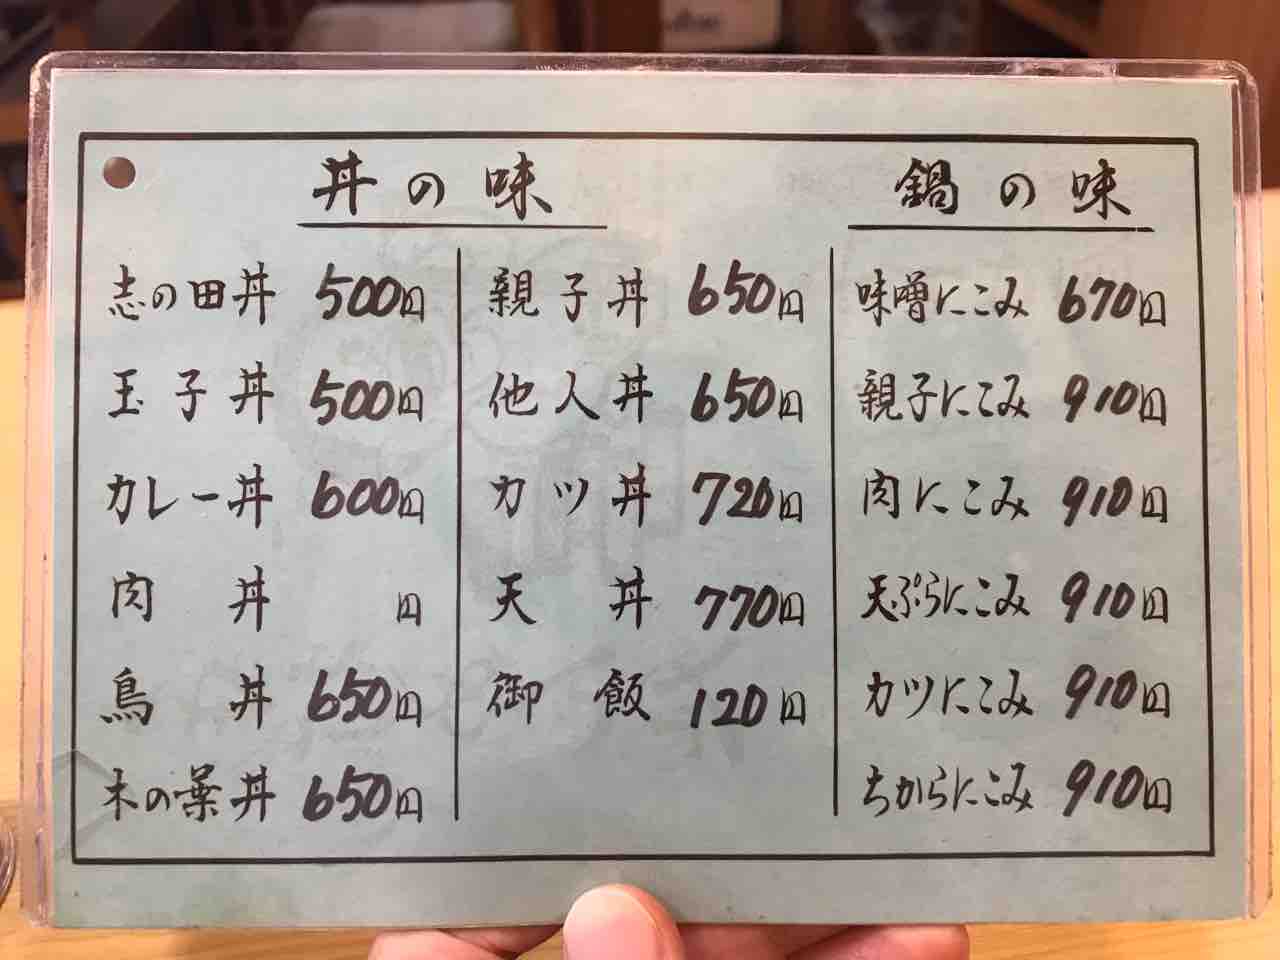 丼の味
志の田丼 500円
玉子丼 500円
カレー丼 600円
肉丼 円
鳥丼 650円
木の葉丼 650円
親子丼 650円
他人丼 650円
カツ丼 720円
天丼 770円
御飯 120円
鍋の味
味噌にこみ 670円
親子にこみ 910円
肉にこみ 910円
天ぷらにこみ 910円
カツにこみ 910円
ちからにこみ 910円